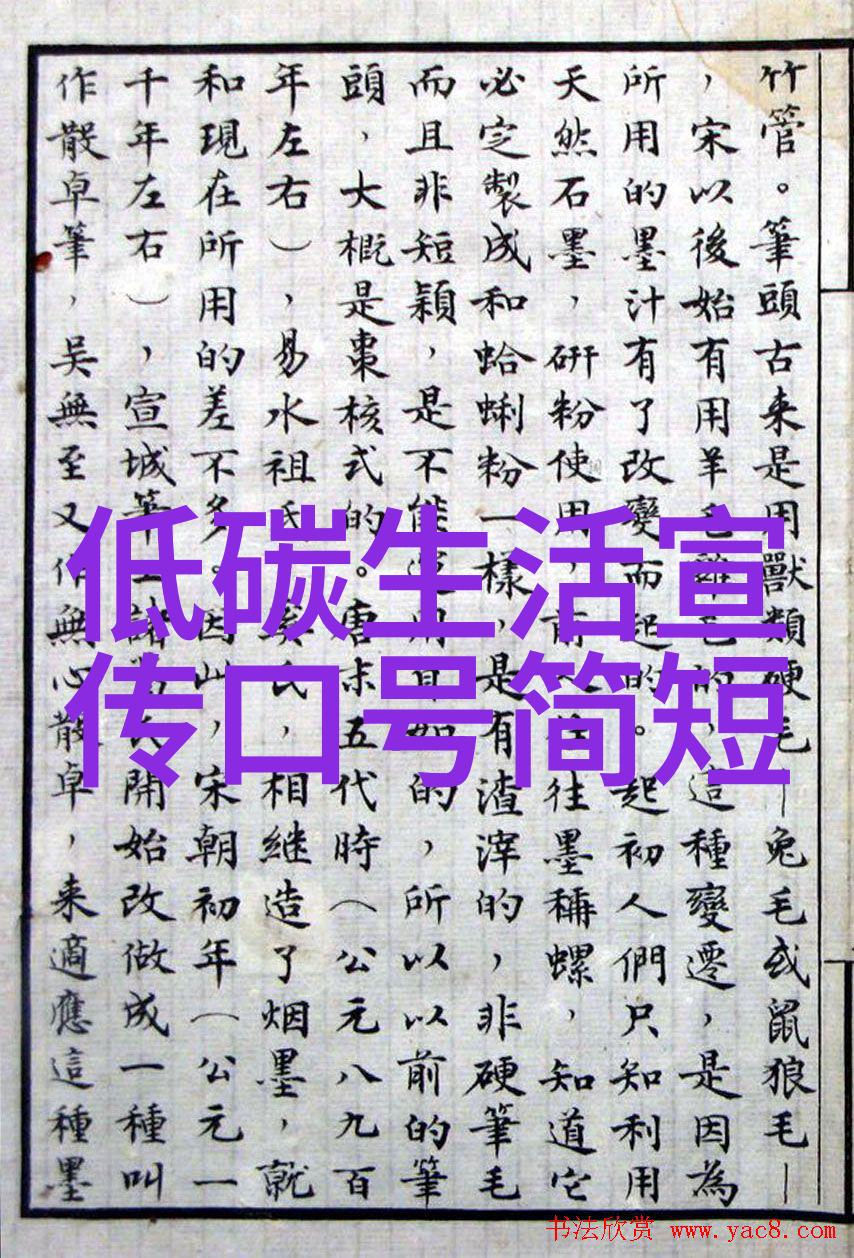 竹管。筆頭古来是用獸類硬毛—兔毛或鼠狼毛—
，宋以後始有用羊毛雞毛的，這種變遷，是因為
所用的墨汁有了改變而起的。起初人們只知利用
天然石墨，研粉使用，前人往往墨稱螺，知道它
必定製成和蛤蜊粉一樣，是有渣滓的，非硬筆毛
而且非短穎，是不能運用自如的，所以以前的筆
頭，大概是棗核式的。唐末五代時（公元八九百
年左右），易水祖氏奚氏，相継造了烟墨，就
和現在所用的差不多。因此，宋朝初年（公元一
千年左右），宣城筆工諸葛氏開始改做成一種叫
作散卓筆，吳無至又作無心散卓，来適應這種墨
低碳生活宣
传口号简短
书法欣赏 www.yac8.com